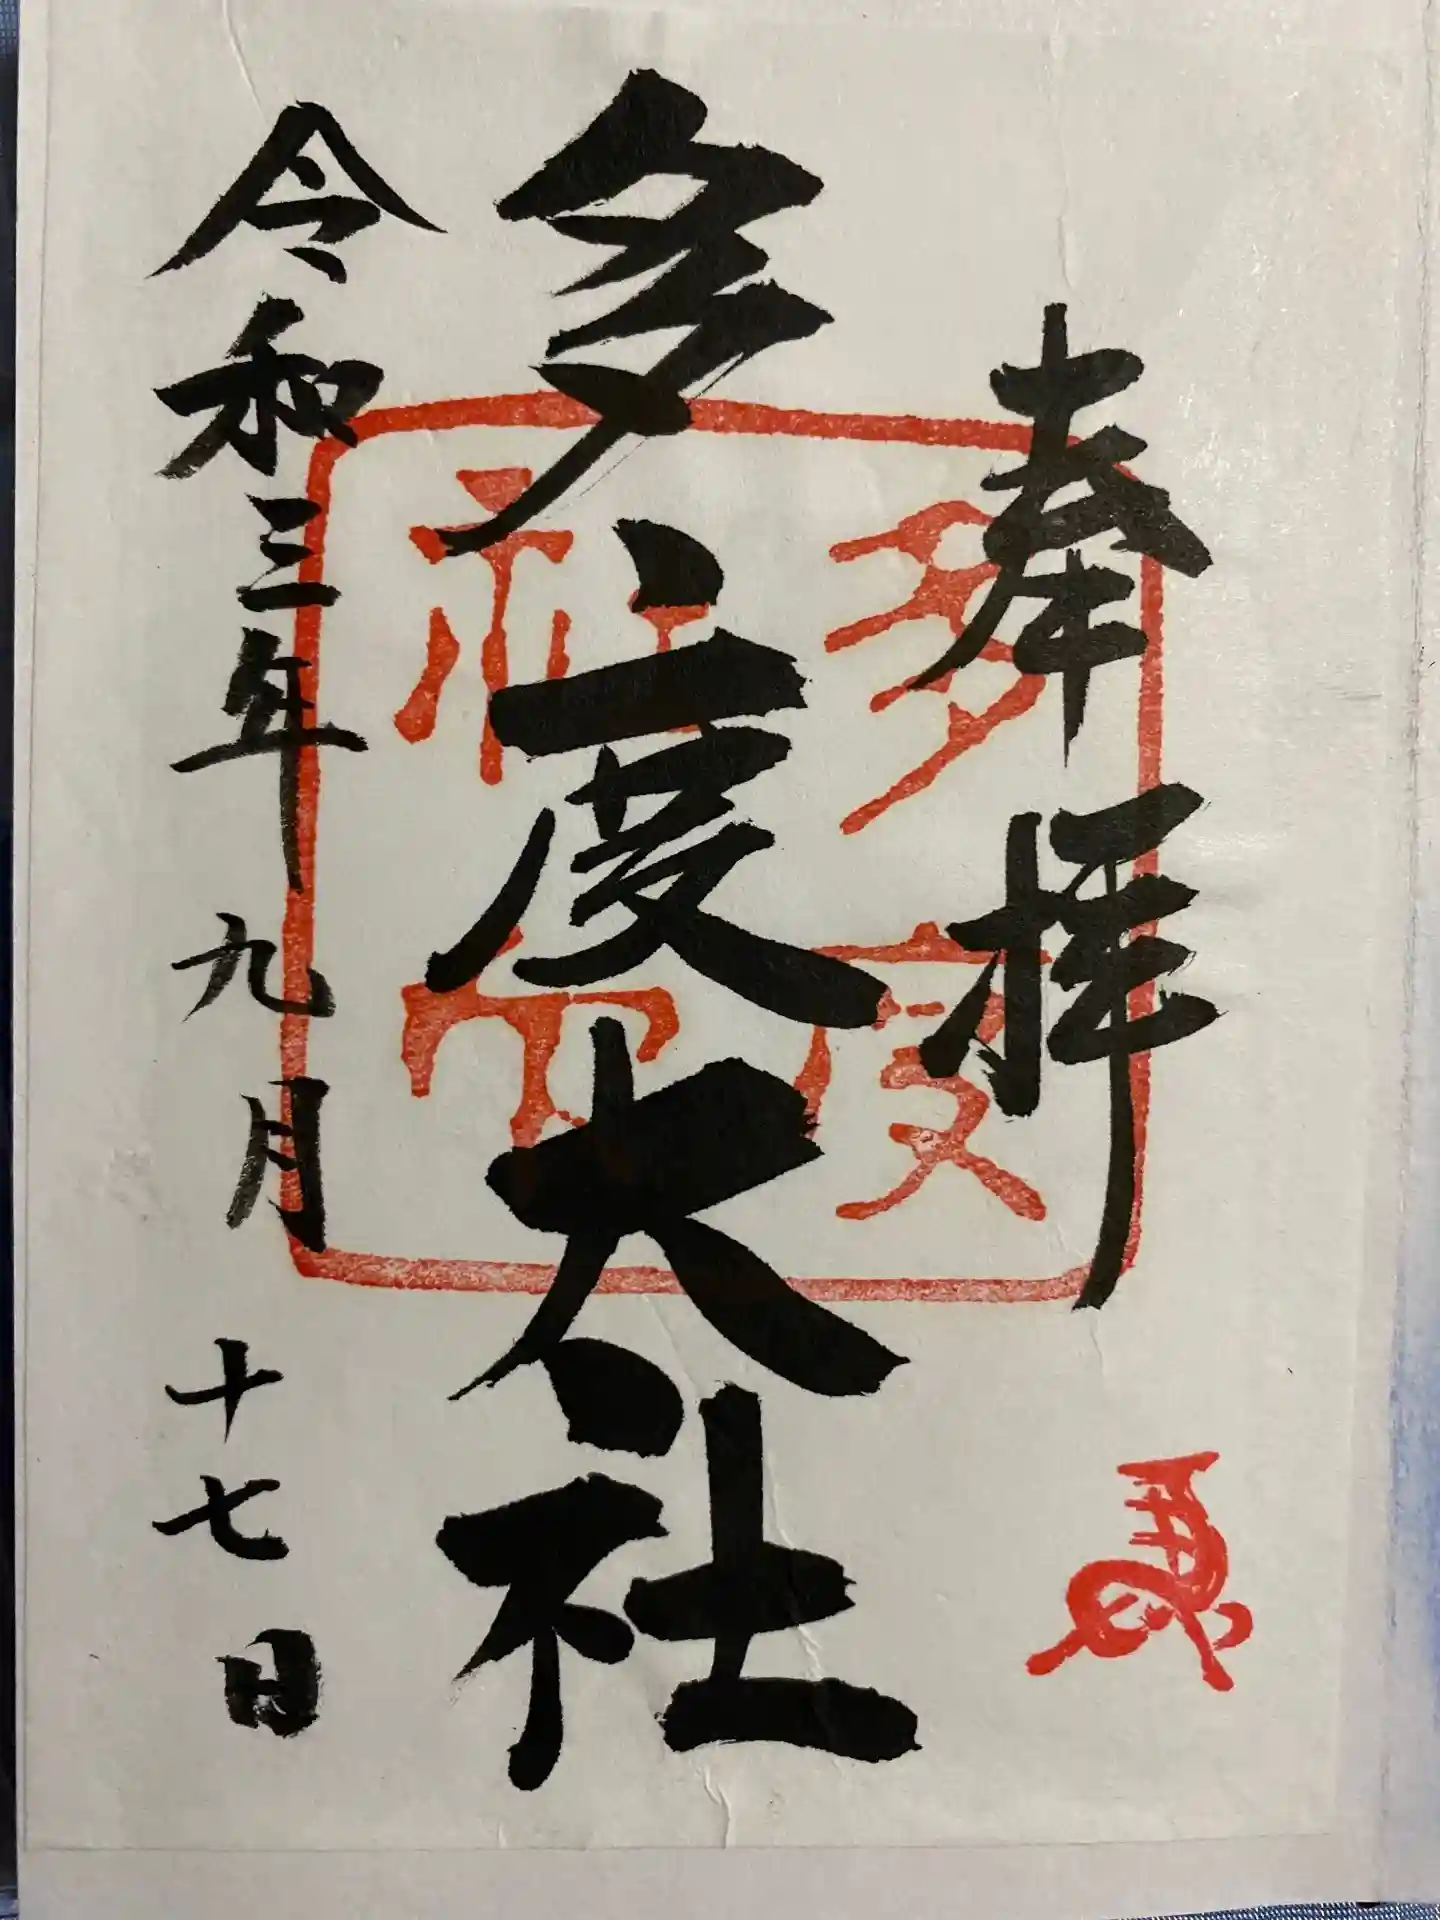 奉拝
多度大社
令和三年九月十七日
多度
神社